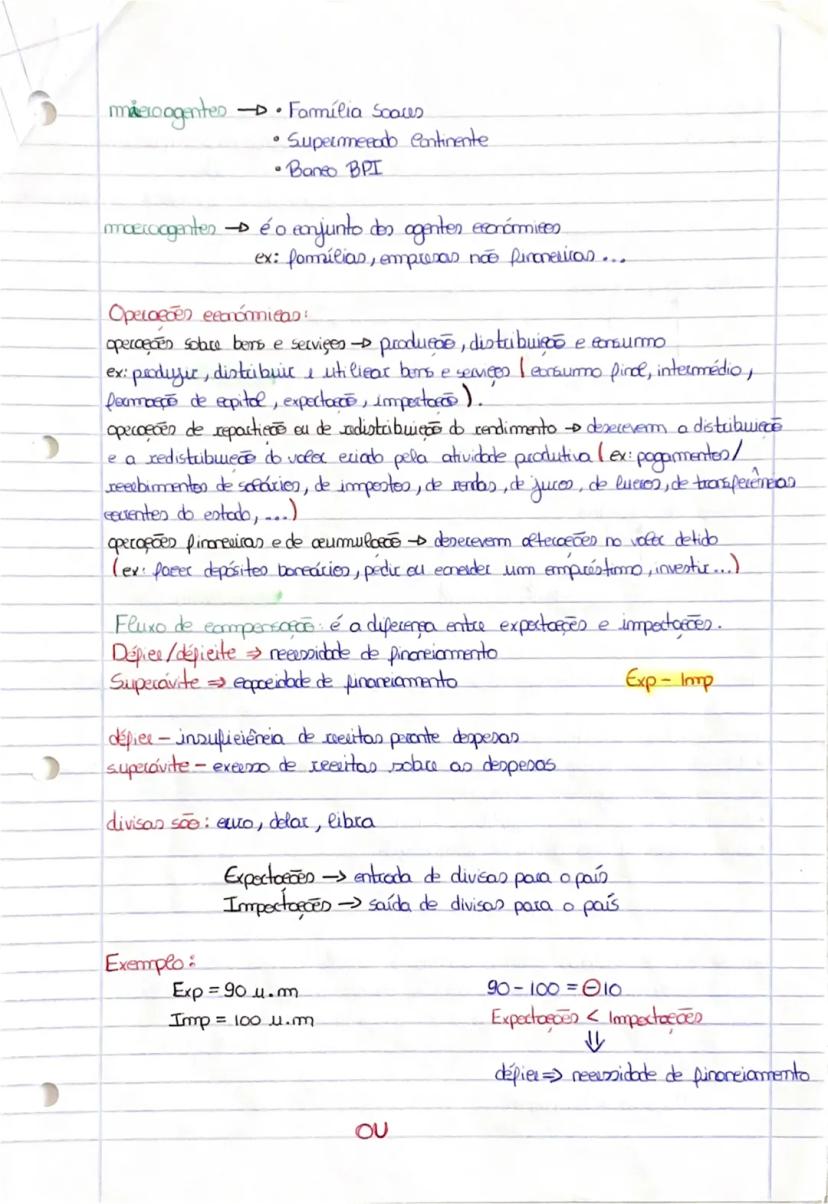 microagentes → • Família Soares
• Supermercado Continente
• Banco BPI
macroagentes → é o conjunto dos agentes económicos
ex: famílias, empresas não financeiras ...
Operações económicas:
operações sobre bens e serviços → produção, distribuição e consumo
ex: produzir, distribuir e utilizar bens e serviços (consumo final, intermédio,
formação de capital, exportação, importação).
operações de repartição ou de redistribuição do rendimento → descrevem a distribuição
e a redistribuição do valor criado pela atividade produtiva (ex: pagamentos/
recebimentos de salários, de impostos, de rendas, de juros, de lucros, de transferências
correntes do estado, ...)
operações financeiras e de acumulação → descrevem alterações no valor detido
(ex: fazer depósitos bancários, pedir ou conceder um empréstimo, investir...)
Fluxo de compensação: é a diferença entre exportações e importações.
Défice/déficite ⇒ necessidade de financiamento
Superávite ⇒ capacidade de financiamento Exp - Imp
défice - insuficiência de receitas perante despesas
superávite - excesso de receitas sobre as despesas
divisas são: euro, dolar, libra
Exportações → entrada de divisas para o país
Importações → saída de divisas para o país
Exemplo:
Exp = 90 u.m 90 - 100 = -10
Imp = 100 u.m Exportações < Importações
⇓
défice ⇒ necessidade de financiamento
OU